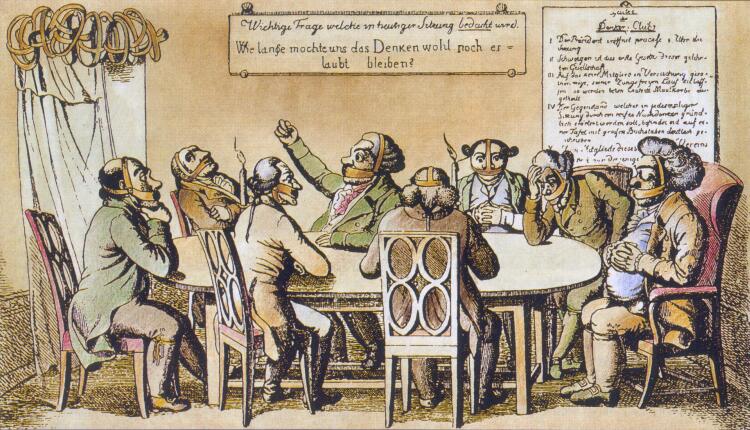 Wichtige Frage welche in heutiger Sitzung bedacht wird.
Wie lange möchte uns das Denken wohl noch er=
laubt bleiben?
der
Denker-Club
I Der Präsident eröffnet präcise 8 Uhr die
Sitzung
II Schweigen ist das erste Gesetz dieser gelehr-
ten Gesellschaft
III Auf das kein Mitglied in Versuchung
seiner Zunge freyen Lauf
so werden beim Eintritt Maulkörbe aus-
getheilt
IV Der Gegenstand welcher in jedesmaliger
Sitzung durch ein reifes Nachdenken gründ-
lich erörtert werden soll, befindet sich auf ei-
ner Tafel mit großen Buchstaben deutlich ge-
schrieben